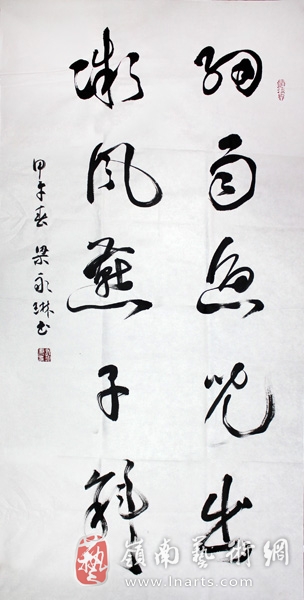 细雨鱼儿出
微风燕子斜
甲午春 梁永琳书
藝 嶺南藝術網
www.lnarts.com